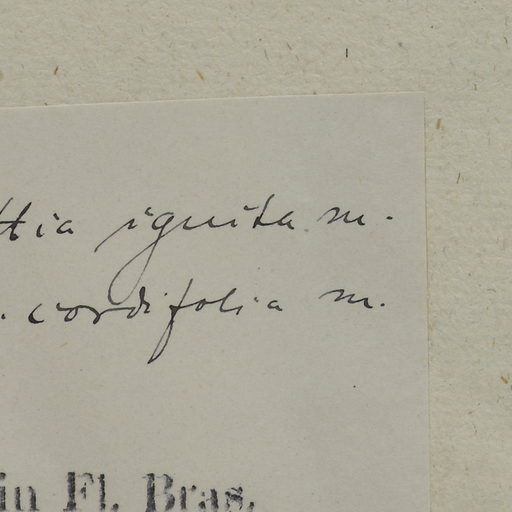 ttia ignita m.
. cordifolia m.
in Fl. Bras.